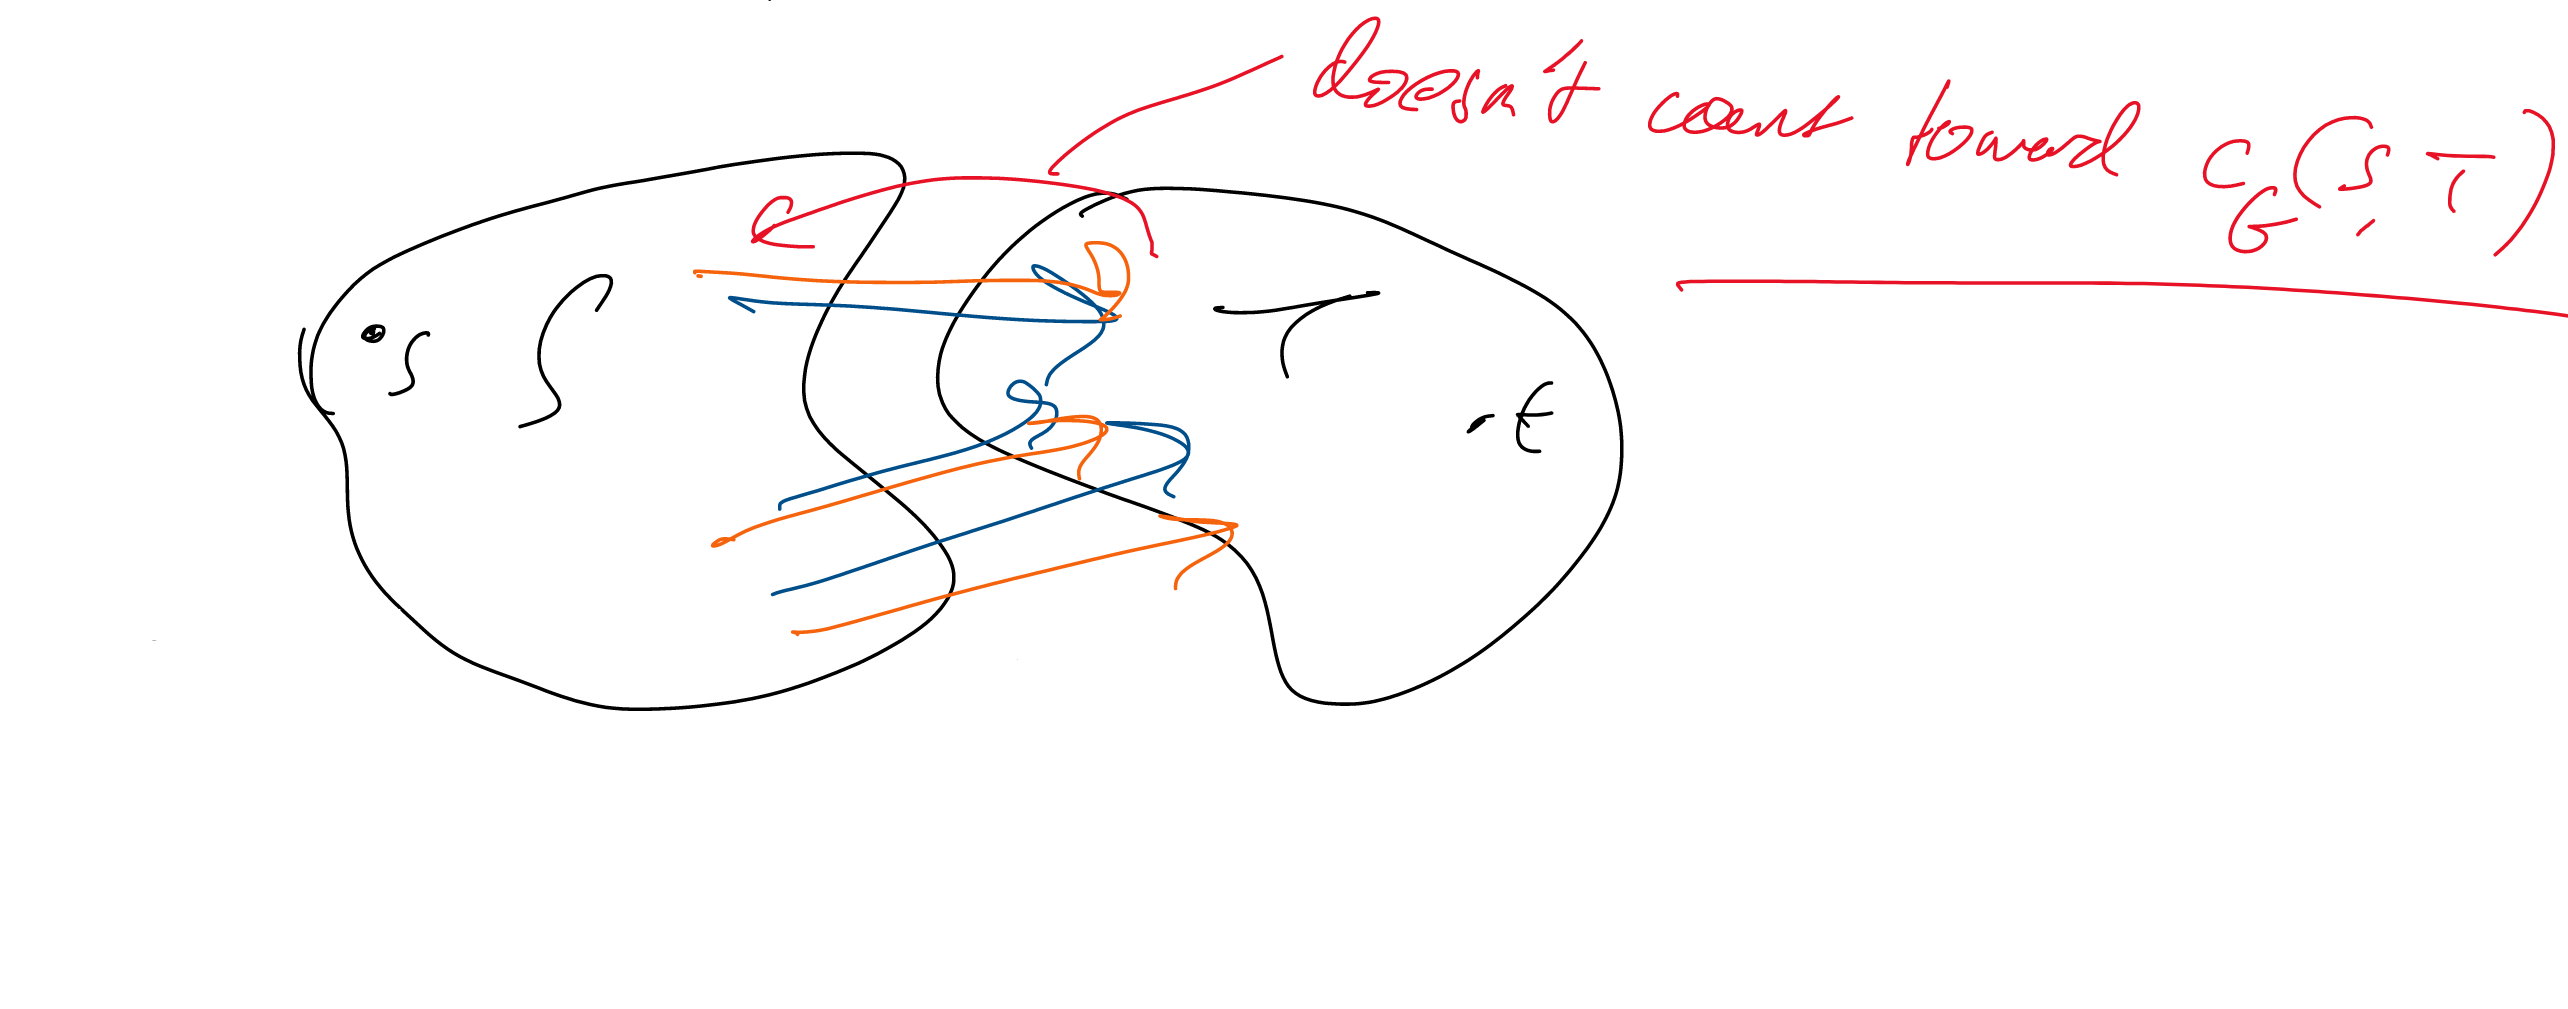 doesn't count toward c_G(S, T)
S
T
s
t